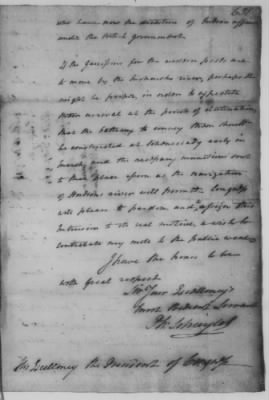 who have now the direction of Indian affairs
under the British government.
If the garrisons for the western posts are
to move by the Mohawk river, perhaps
might be proper, in order to expedite
their arrival at the period of evacuation,
that the batteaux to convey them should
be constructed at Schenectady early in
March, and the necessary munitions sent
to that place as soon as the navigation
of Hudsons river will permit. Congress
will please to pardon and ascribe this
Intrusion to its real motive, a wish to
contribute my mite to the public weal.
I have the honor to be
with great respect
Sir Your Excellency's
most Obedient Servant
Ph: Schuyler
His Excellency the President of Congress